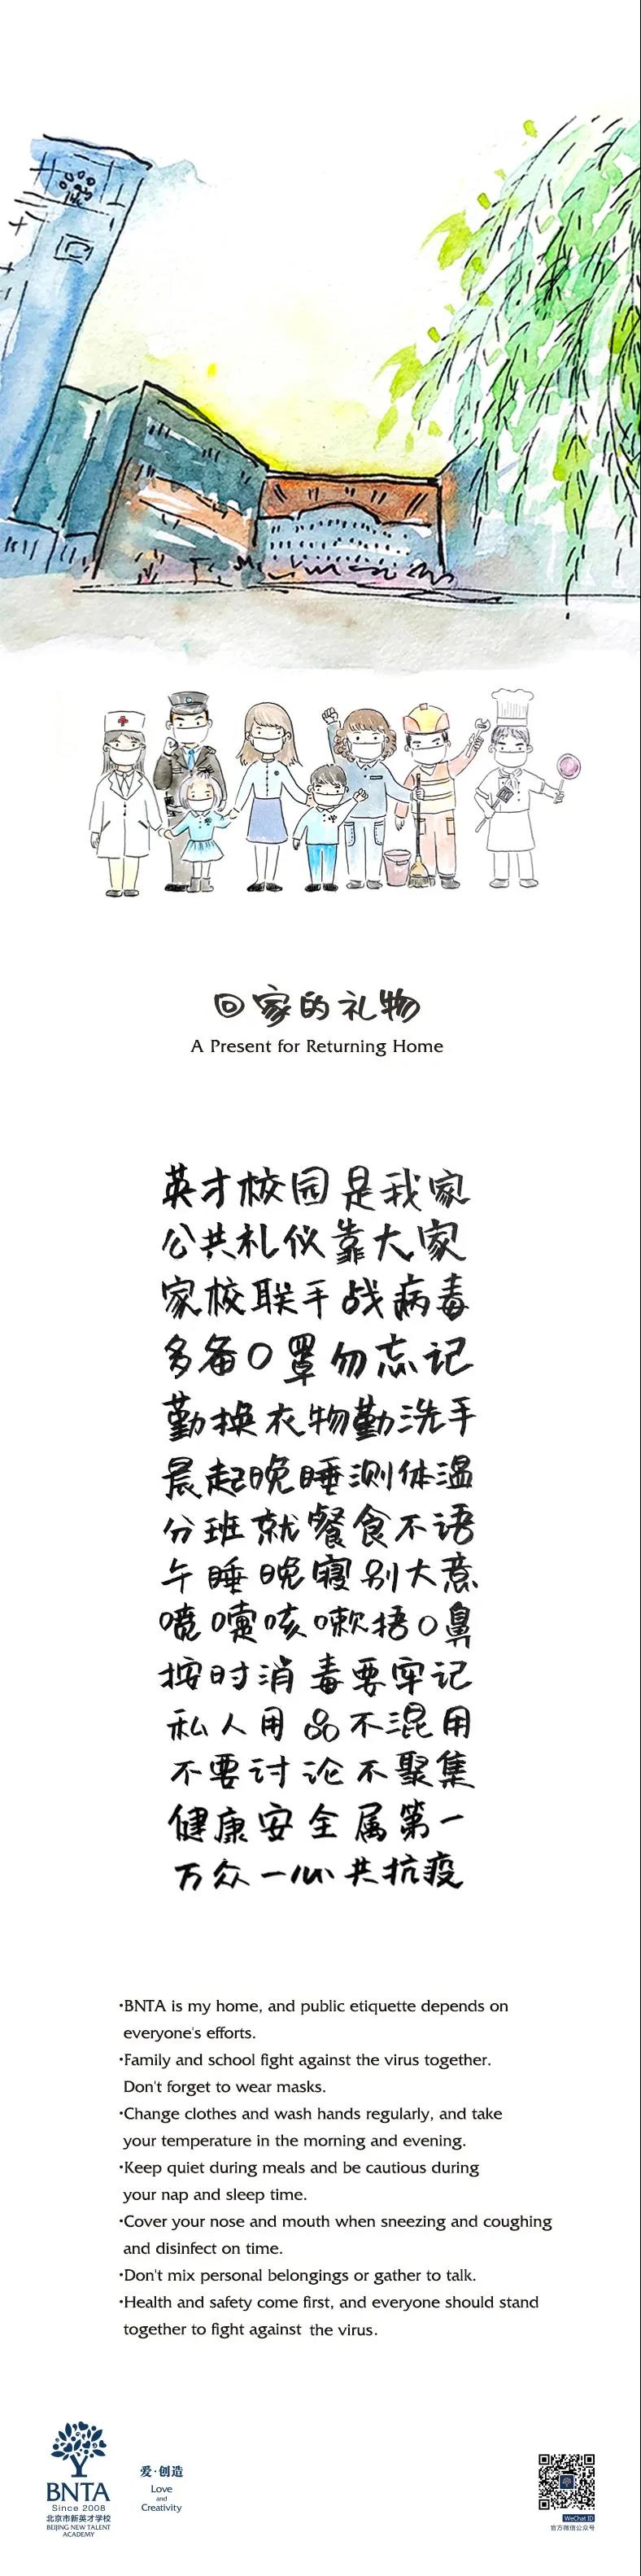 回家的礼物
A Present for Returning Home
英才校园是我家
公共礼仪靠大家
家校联手战病毒
多备口罩勿忘记
勤换衣物勤洗手
晨起晚睡测体温
分班就餐食不语
午睡晚寝别大意
喷嚏咳嗽捂口鼻
按时消毒要牢记
私人用品不混用
不要讨论不聚集
健康安全属第一
万众一心共抗疫
·BNTA is my home, and public etiquette depends on
everyone's efforts.
·Family and school fight against the virus together.
Don't forget to wear masks.
·Change clothes and wash hands regularly, and take
your temperature in the morning and evening.
·Keep quiet during meals and be cautious during
your nap and sleep time.
·Cover your nose and mouth when sneezing and coughing
and disinfect on time.
·Don't mix personal belongings or gather to talk.
·Health and safety come first, and everyone should stand
together to fight against the virus.
BNTA
Since 2008
北京市新英才学校
BEIJING NEW TALENT
ACADEMY
爱·创造
Love
and
Creativity
WeChat ID
官方微信公众号